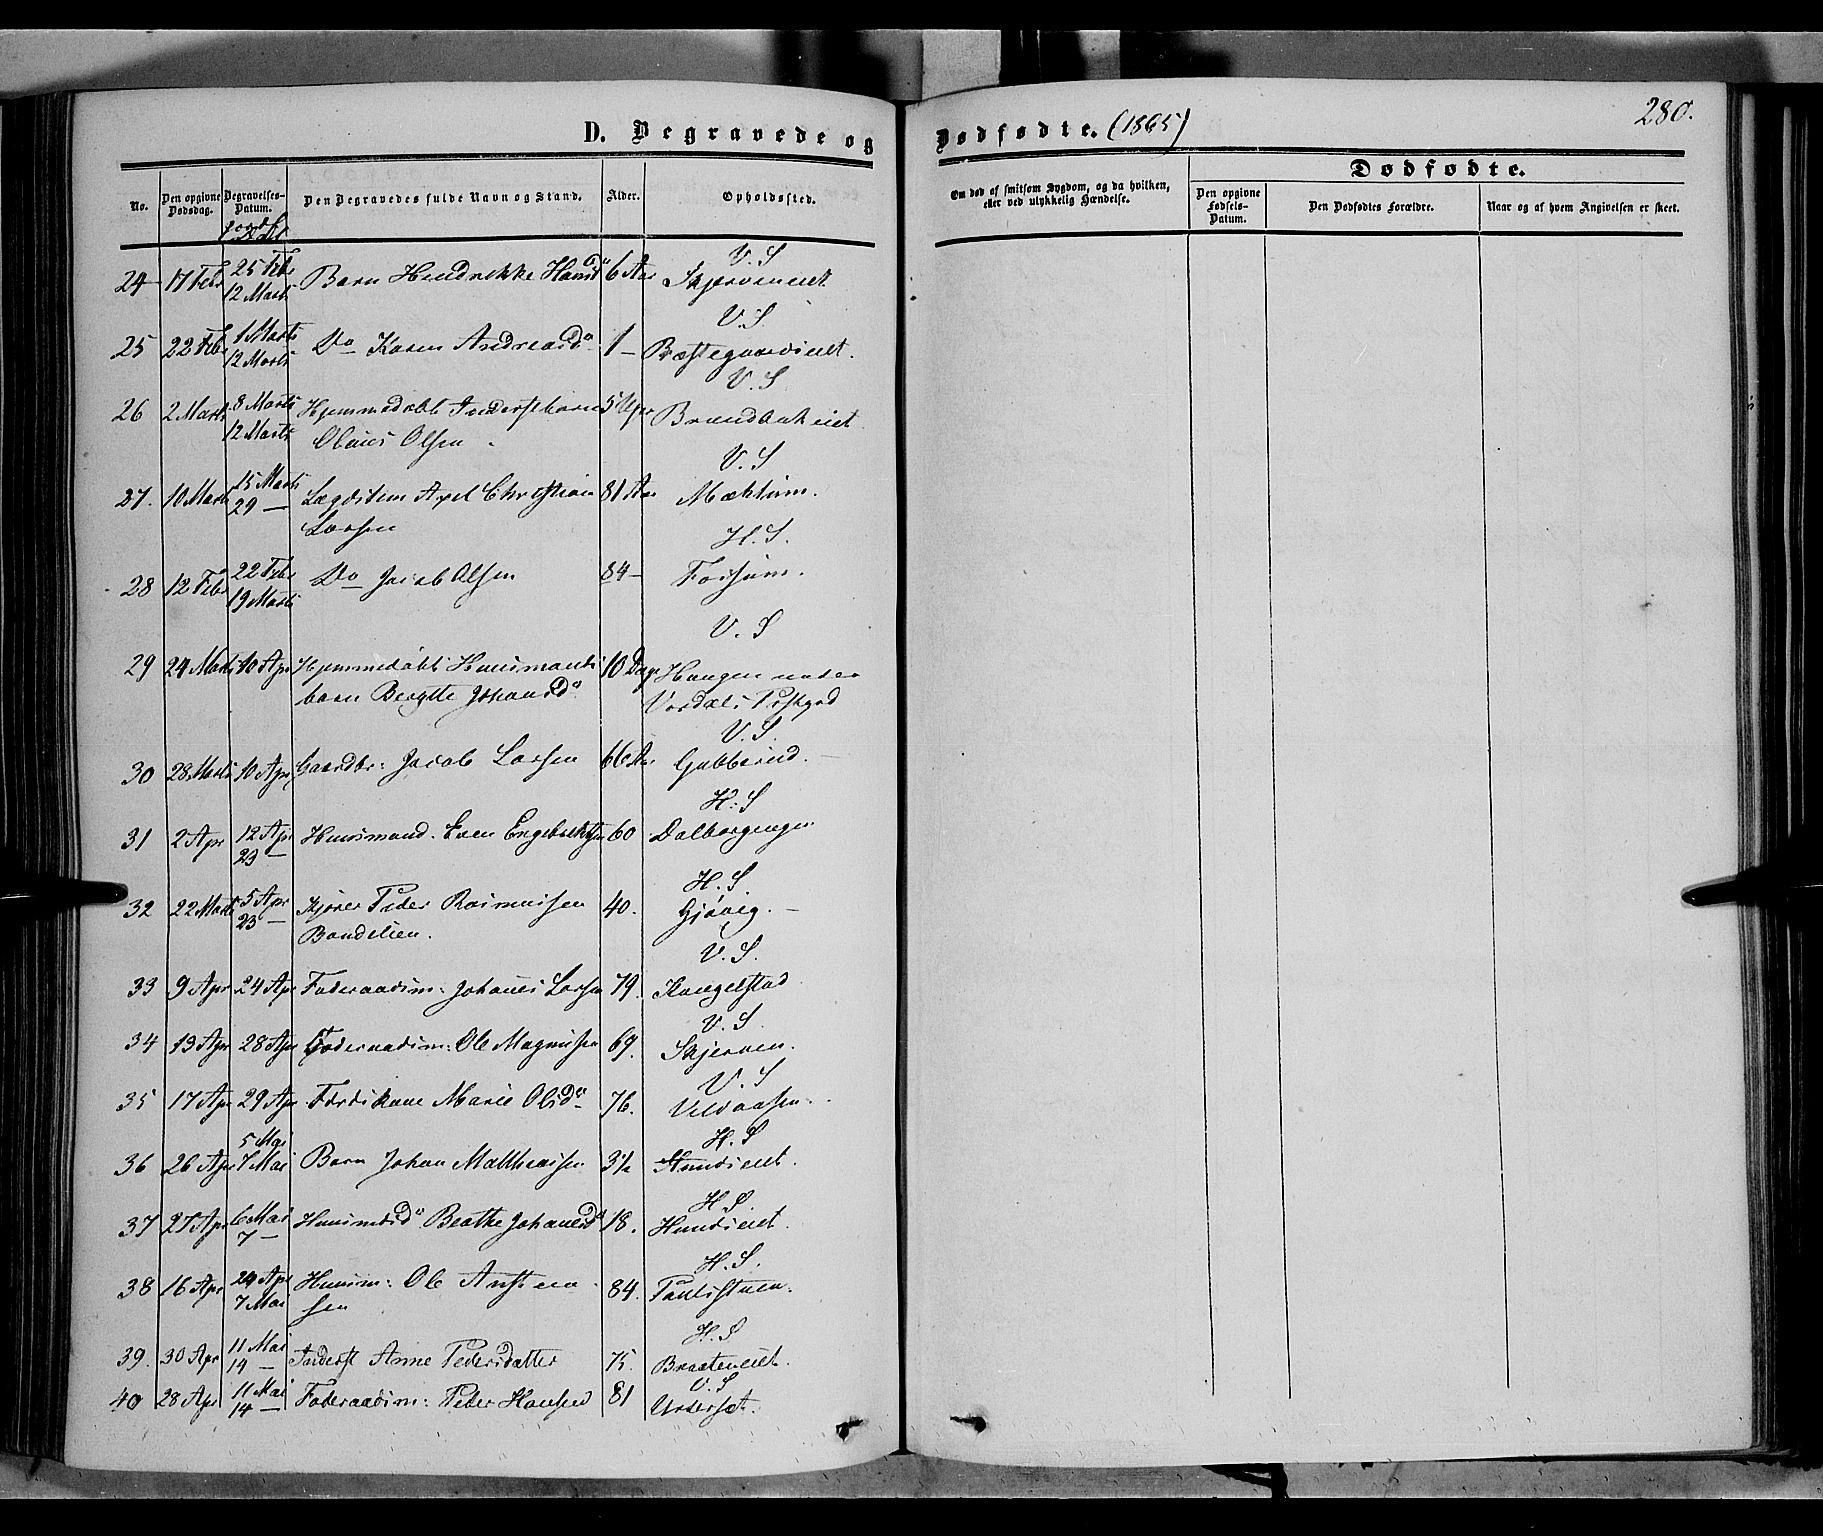 D. Begravede og
Dødfødte. (1865)
280.
No.
Den opgivne Dødsdag.
Begravelses-Datum.
Den Begravedes fulde Navn og Stand.
Alder.
Opholdssted.
Om død af smitsom Sygdom, og da hvilken, eller ved ulykkelig Hændelse.
Dødfødte.
Den opgivne Fødsels-Datum.
Den Dødfødtes Forældre.
Naar og af hvem Angivelsen er skeet.
V. S
24 17 Febr 25 Febr 12 Marts Barn Hendrikke Hansd 6 Aar Skjerveneiet
V. S.
25 22 Febr 1 Marts 12 Marts Do Karen Andreasd 1 –
V. S
26 2 Marts 8 Marts 12 Marts Hjemmedøbt Inderstbarn 5 Uger Brændbakeiet
Olaus Olsen
V. S
27. 10 Marts 15 Marts 29 – Lægdslem Axel Christian 81 Aar Mæhlum.
Larsen
H. S.
28 12 Febr 22 Febr 19 Marts Do Jacob Olsen 84 – Forsum.
V. S
29 24 Marts 10 Apr Hjemmedøbt Huusmands 10 Dage Haugen under
barn Beathe Johansd Vardals Præstgrd
V. S.
30 28 Marts 10 Apr Gaardbr: Jacob Larsen 66 Aar Gubberud.
H. S
31 2 Apr 12 Apr 23 – Huusmand. Even Engebretsen 60 Dalborgengen
H. S.
32 22 Marts 5 Apr 23 – Kjører Peder Rasmussen 40. Gjøvig. –
Bondelien.
V. S.
33 9 Apr 24 Apr Føderaadsm: Johanes Larsen 79. Kangelstad
V. S.
34 13 Apr 28 Apr Føderaadsm: Ole Magnusen 69. Skjerven.
V. S
35 17 Apr 29 Apr Førdskone Marie Olsd 76.
H. S
36 26 Apr 5 Mai 7 Mai Barn Johan Matthiassen 3½ Hundseiet.
H. S
37 27 Apr 6 Mai 7 – Huusmdsd Beathe Johanesd 18. Hundseiet.
H. S.
38 16 Apr 24 Apr 7 Mai Huusm: Ole Ansten- 84. Paulsstuen.
sen
H. S
39. 30 Apr 11 Mai 14 – Inderst Anne Pedersdatter 75. Brateneiet.
V. S
40 28 Apr 11 Mai 14 – Føderaadsm: Peder Hansen 81 Underset.